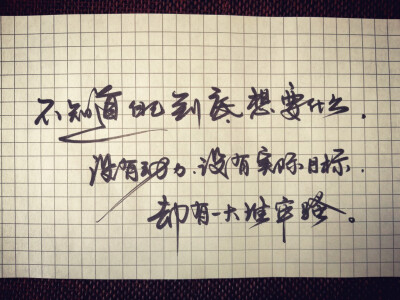 不知道自己到底想要什么.
没有动力.没有实际目标.
却有一大堆牢骚。